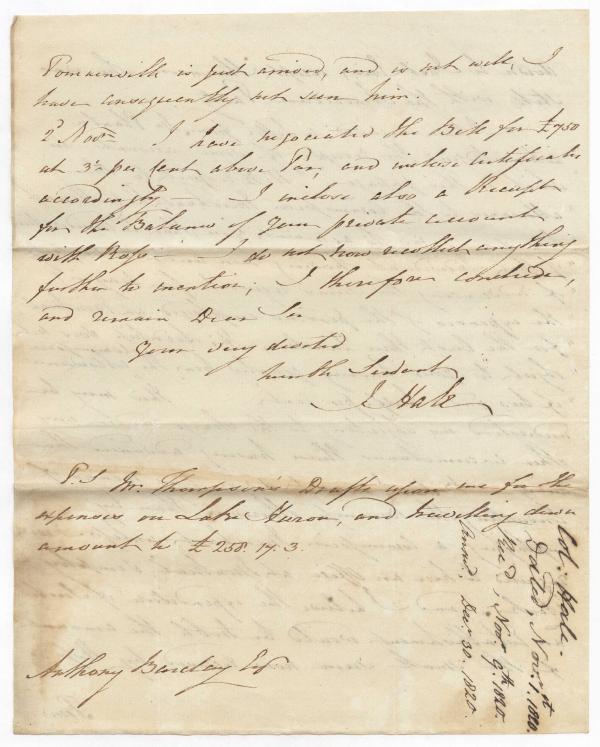 is just arrived, and is not well, I
have consequently not seen him.
2d Novr. I have negociated the Bill for £750
at 3 per Cent above Par, and inclose Certificates
accordingly — I inclose also a Receipt
for the Balance of your private account
with Ross — I do not now recollect anything
further to mention, I therefore conclude,
and remain Dear Sir
Your very devoted
humb Servant
J Hale
P.S Mr. Thompson's Draft upon me for the
expenses on Lake Huron, and travelling down
amount to £ 258. 17. 3.
Anthony Barclay Esqr
Col. Hale.
Dated, Novr. 1st 1820.
Rec'd, Novr. 9th 1820.
Answd. Decr. 30. 1820.